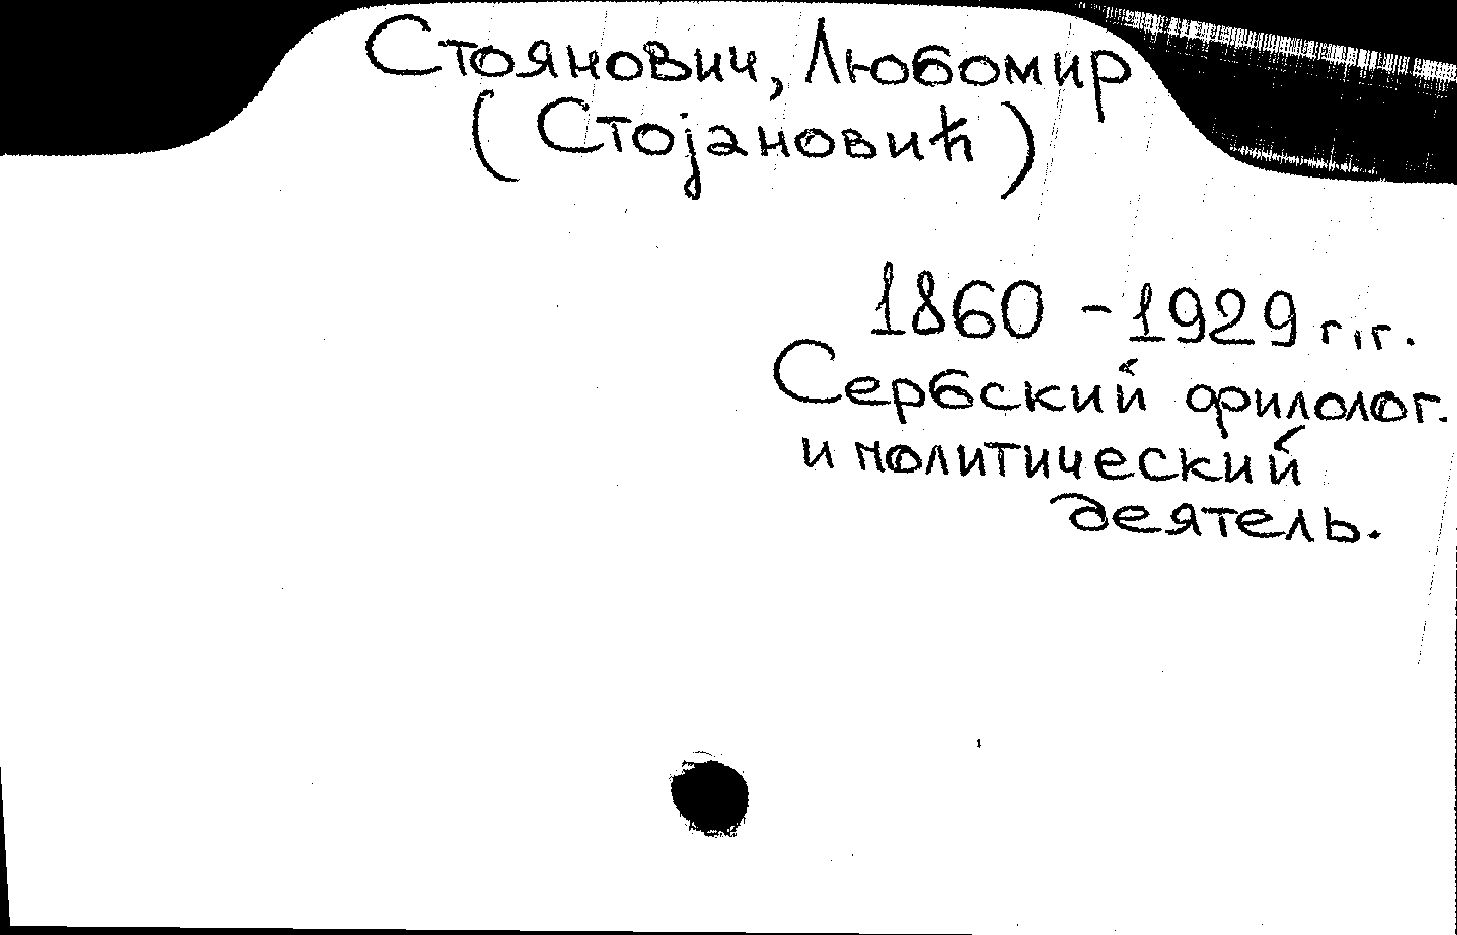 Стоянович, Любомир
(Стојановић)
1860 - 1929 г.г.
Сербский филолог.
и политический
деятель.